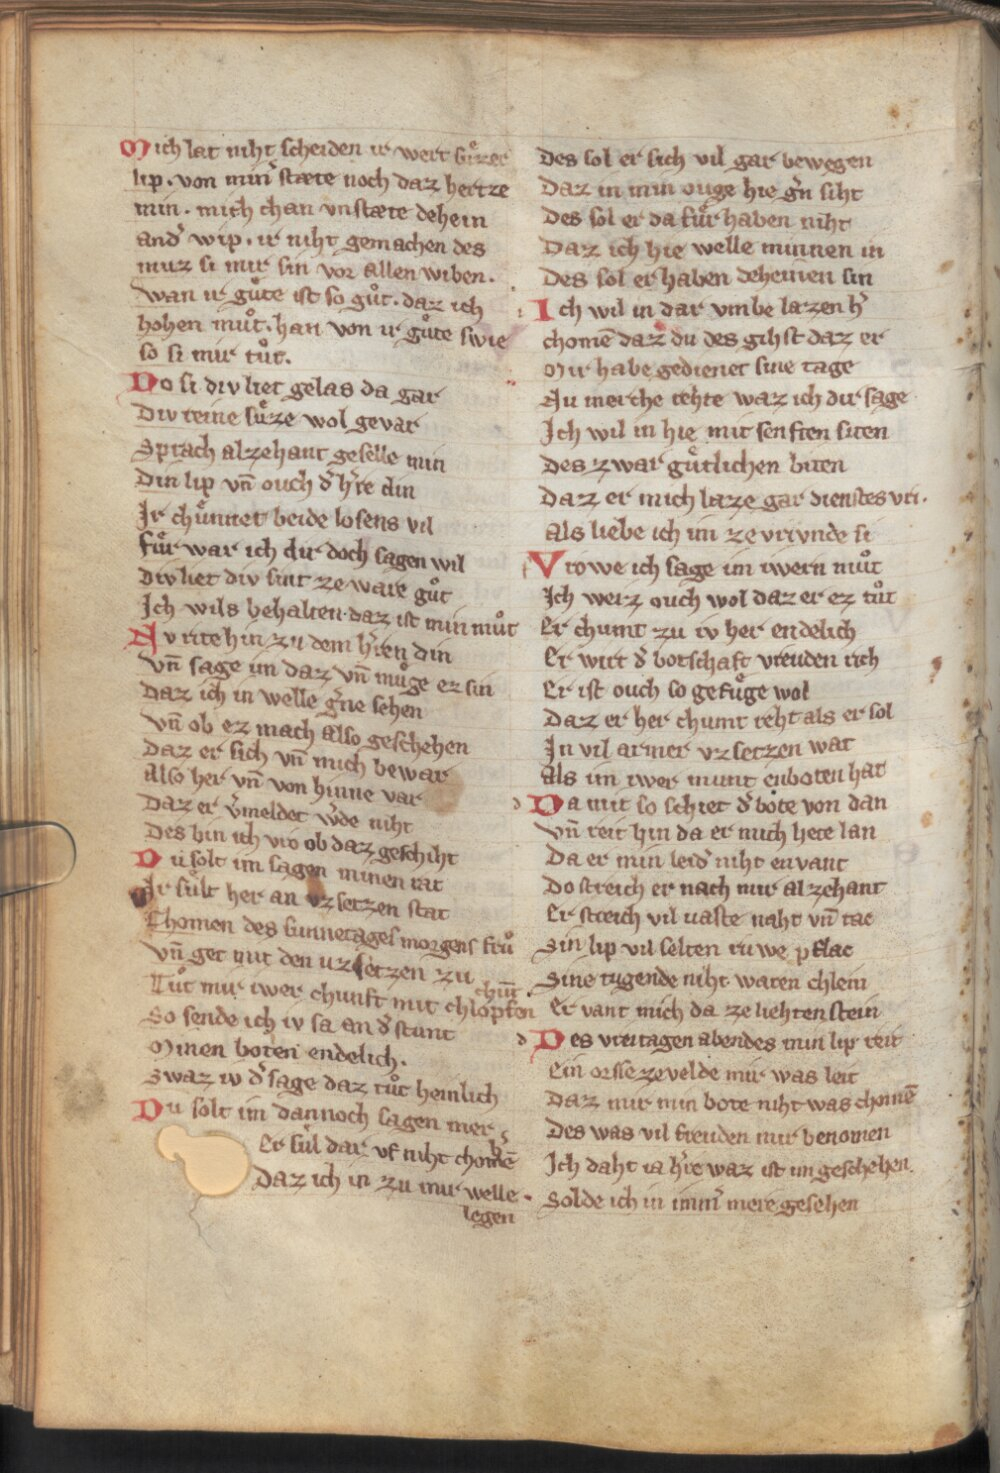 Mich lat niht scheiden ir wert suͤzer
lip · von min̄ stæte noch daz hertze
min · mich chan vnstæte dehein
and͛ wip · ir niht gemachen des
muz si mir sin vor allen wiben ·
wan ir guͤte ist so guͦt · daz ich
hohen muͦt · han von ir guͤte swie
so si mir tuͦt ·
Do si div liet gelas da gar
Div reine suͤze wol gevar
Sprach alzehant geselle min
Din lip vn̄ ouch d͛ h͛re din
Ir chuͤnnet beide losens vil
fuͤr war ich dir doch sagen wil
Div liet div sint zeware guͦt
Ich wils behalten · daz ist min muͦt
Nv rite hin zu dem h͛ren din
Vn̄ sage im daz vn̄ muͤge ez sin
Daz ich in welle g͛ne sehen
Vn̄ ob ez mach also geschehen
Daz er sich vn̄ mich bewar
Also her vn̄ von hinne var
Daz er v͛meldet w͛de niht
Des bin ich vro ob daz geschiht
Du solt im sagen minen rat
Ir suͤlt her an vzsetzen stat
Chomen des sunnetages morgens fruͦ
Vn̄ get mit den uzsetzen zu
Tuͦt mir iwer chunft mit chlopfen chunt
So sende ich iv sa an d͛ stunt
Minen boten endelich ·
Swaz iv d͛ sage daz tuͦt heinlich
Du solt im dannoch sagen mer
Er suͤl dar vf niht chomē h͛
Daz ich in zu mir welle · legen
Des sol er sich vil gar bewegen
Daz in min ouge hie g͛n siht
Des sol er da fuͤr haben niht
Daz ich hie welle minnen in
Des sol er haben deheinen sin
Ich wil in dar vmbe lazen h͛
chomē daz du des gihst daz er
Mir habe gedienet sine tage
Nu merche rehte waz ich dir sage
Ich wil in hie mit senften siten
Des zwar guͤtlichen biten
Daz er mich laze gar dienstes vri ·
Als liebe ich im ze vrivnde si
Vrowe ich sage im iwern muͦt
Ich weiz ouch wol daz er ez tuͦt
Er chumt zu iv her endelich
Er wirt d͛ botschaft vreuden rich
Er ist ouch so gefuͤge wol
Daz er her chumt reht als er sol
In vil armer vzsetzen wat
Als im iwer munt enboten hat
Da mit so schiet d͛ bote von dan
Vn̄ reit hin da er mich hete lan
Da er min leid͛ niht envant
Do streich er nach mir alzehant
Er streich vil vaste naht vn̄ tac
Sin lip vil selten ruwe pflac
Sine tugende niht waren chlein
Er vant mich da ze liehtenstein
Des vreitagen abendes min lip reit
Ein orsse ze velde mir was leit
Daz mir min bote niht was chomē
Des was vil freuden mir benomen
Ich daht ia h͛re waz ist im geschehen ·
Solde ich in imm͛ mere gesehen